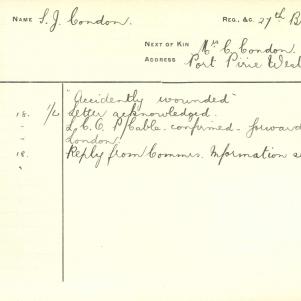 NAME S. J. Condon. REG., &C. 27th B
NEXT OF KIN Mrs C. Condon.
ADDRESS Port Pirie West
"Accidently wounded"
18. 1/2 Letter acknowledged.
" L.C.C. P/Cable confirmed forward
" London
18. Reply from Commrs. Information s
"